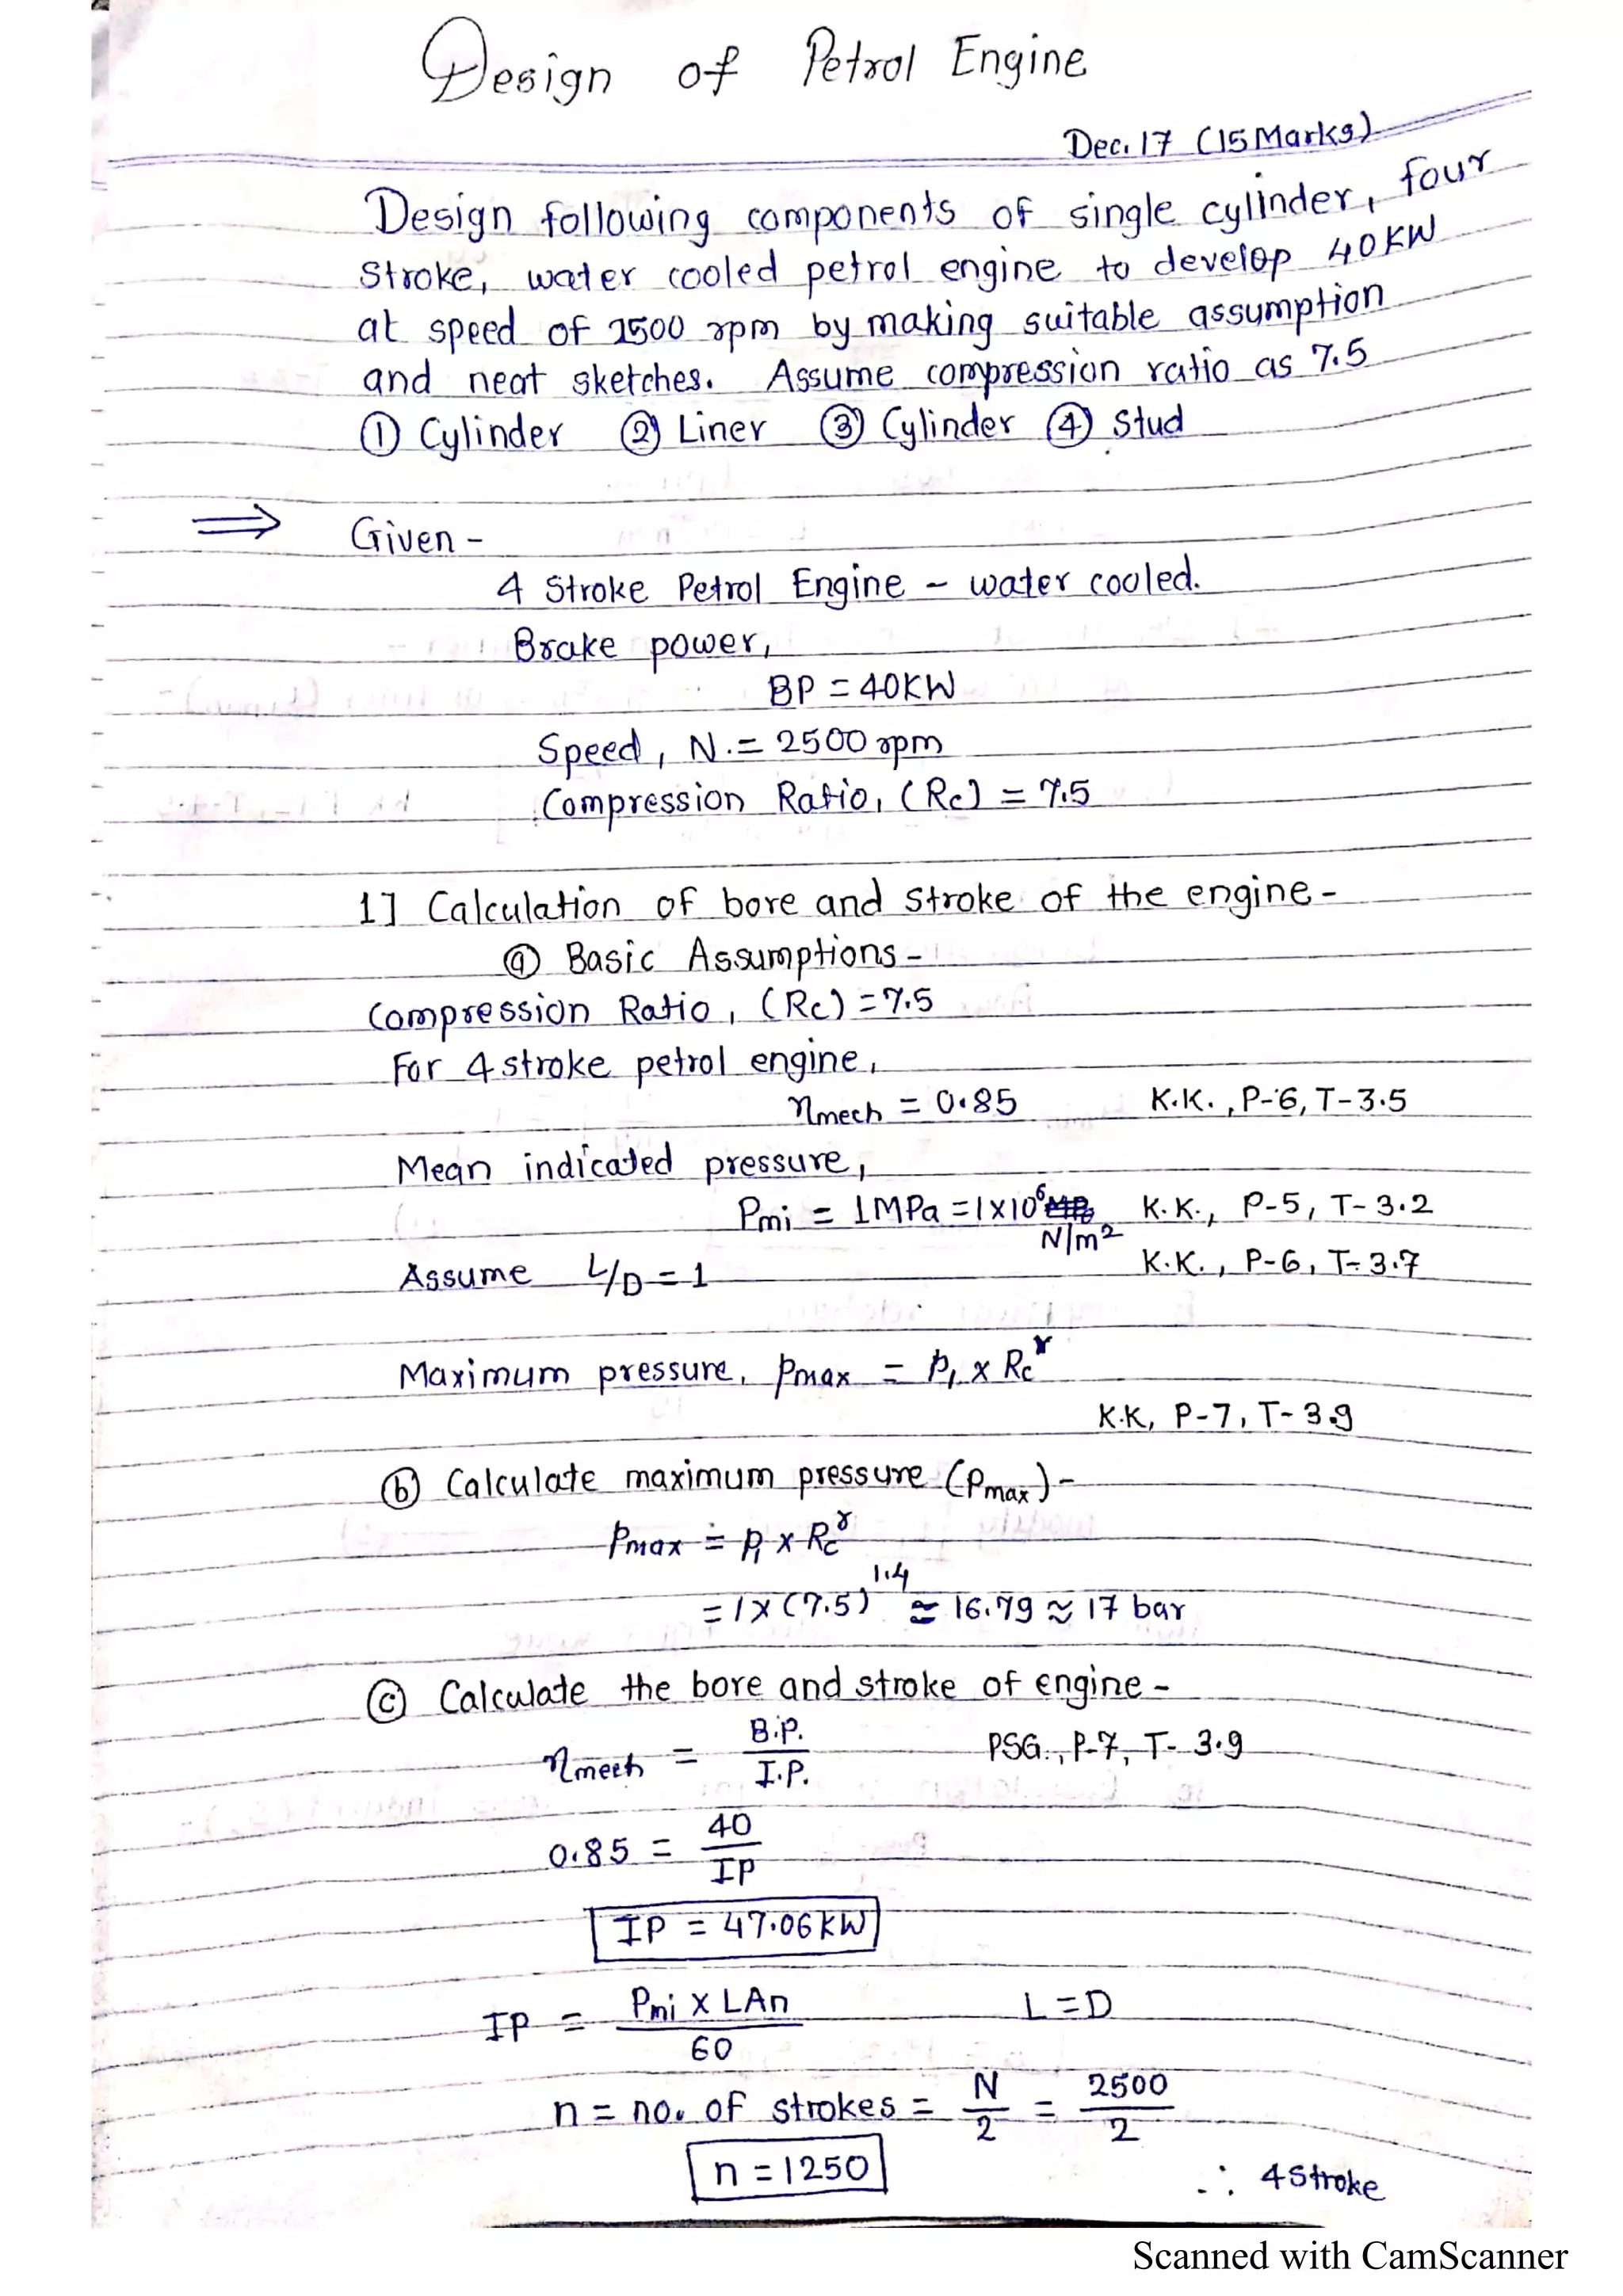 Design of Petrol Engine
Dec. 17 (15 Marks)
Design following components of single cylinder, four
stroke, water cooled petrol engine to develop 40KW
at speed of 2500 rpm by making suitable assumption
and neat sketches. Assume compression ratio as 7.5
① Cylinder ② Liner ③ Cylinder ④ Stud
⇒ Given -
4 Stroke Petrol Engine - water cooled.
Brake power,
BP = 40KW
Speed, N = 2500 rpm
Compression Ratio, (Rc) = 7.5
1] Calculation of bore and stroke of the engine -
ⓐ Basic Assumptions -
Compression Ratio, (Rc) = 7.5
For 4 stroke petrol engine,
ηmech = 0.85 K.K., P-6, T-3.5
Mean indicated pressure,
Pmi = 1MPa = 1x10⁶ N/m² K.K., P-5, T-3.2
Assume L/D = 1 K.K., P-6, T-3.7
Maximum pressure, Pmax = P₁ x Rc^γ
K.K, P-7, T-3.9
ⓑ Calculate maximum pressure (Pmax) -
Pmax = P₁ x Rc^γ
= 1 x (7.5)^1.4 ≅ 16.79 ≈ 17 bar
ⓒ Calculate the bore and stroke of engine -
ηmech = B.P. / I.P. PSG., P-7, T-3.9
0.85 = 40 / IP
IP = 47.06 KW
IP = Pmi x LAn / 60 L = D
n = no. of strokes = N / 2 = 2500 / 2
n = 1250 ∴ 4 Stroke
Scanned with CamScanner